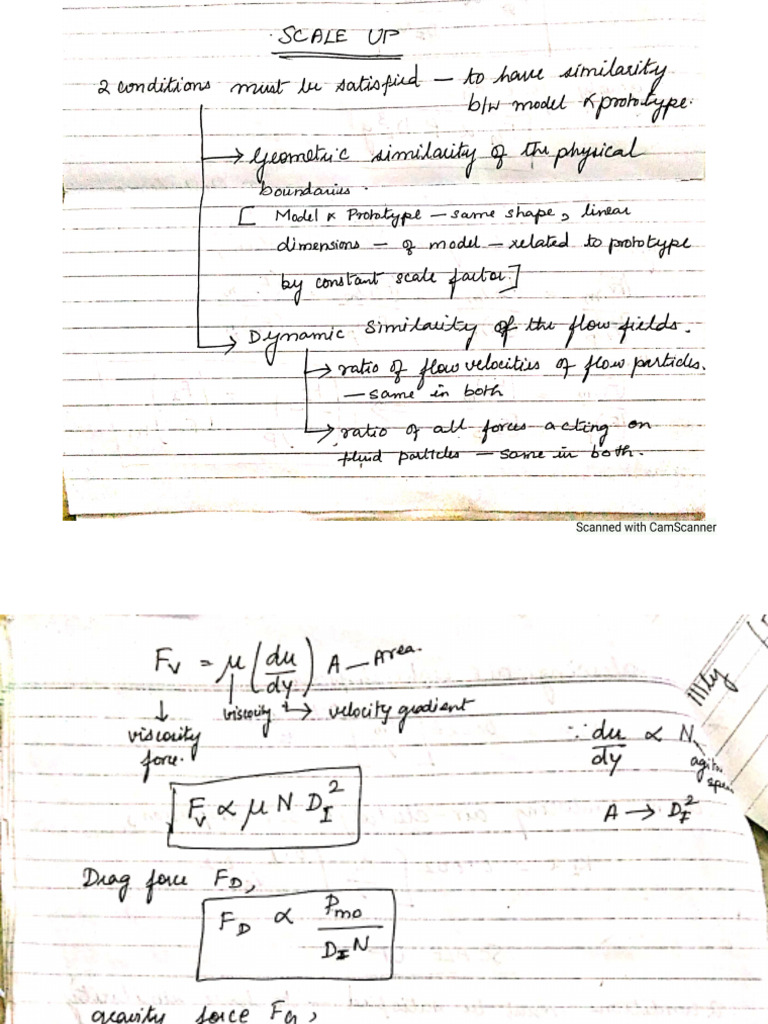 SCALE UP
2 conditions must be satisfied — to have similarity
b/w model & prototype.
→ Geometric similarity of the physical
boundaries.
[ Model & Prototype — same shape, linear
dimensions — of model — related to prototype
by constant scale factor.]
→ Dynamic similarity of the flow fields.
→ ratio of flow velocities of flow particles.
— same in both
→ ratio of all forces acting on
fluid particles — same in both.
Scanned with CamScanner
Fv = μ (du/dy) A — Area.
viscosity → velocity gradient
viscosity
force.
∵ du/dy ∝ N
Fv ∝ μ N D_I²
A → D_I²
Drag force F_D,
F_D ∝ Pmo / D_I N
gravity force